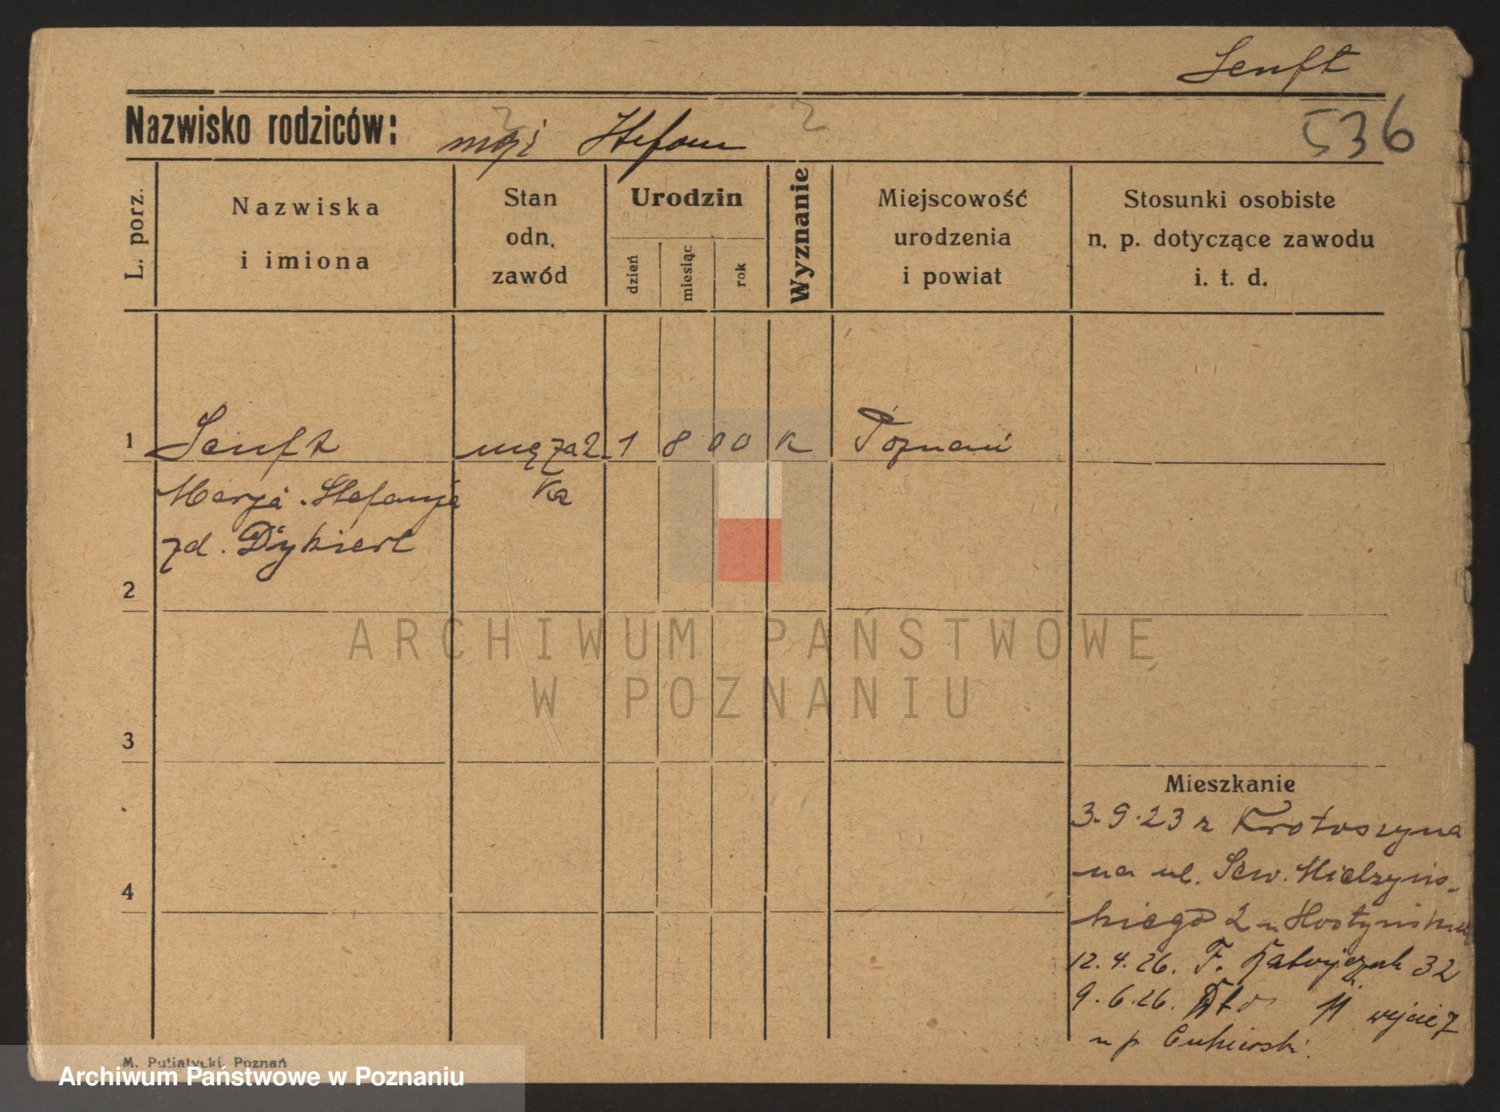 Senft
Nazwisko rodziców: mąż Stefan
536
L. porz.
Nazwiska
i imiona
Stan
odn.
zawód
Urodzin
dzień
miesiąc
rok
Wyznanie
Miejscowość
urodzenia
i powiat
Stosunki osobiste
n. p. dotyczące zawodu
i. t. d.
1 Senft męża 2. 1 8 00 k Poznań
Marja Stefanja tka
zd. Dykiert
2
3
4
ARCHIWUM PAŃSTWOWE
W POZNANIU
Mieszkanie
3.9.23 z Krotoszyna
na ul. Sew. Mielzyńs-
kiego 2
12.4.26. F. Ratajczak 32
9.6.26. 11 wejście 7
n p.
M. Putiatycki, Poznań
Archiwum Państwowe w Poznaniu